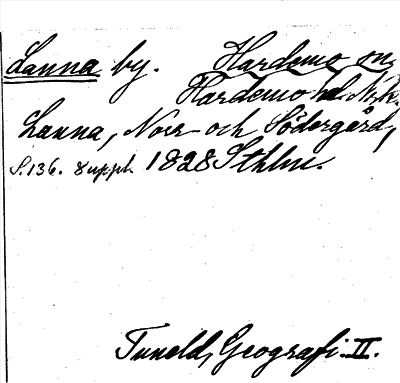 Lanna by. Hardemo sn,
Hardemo hd. Nrk.
Lanna, Norr- och Södergård,
S. 136. 8 uppl. 1828 Sthlm.
Tuneld, Geografi. II.